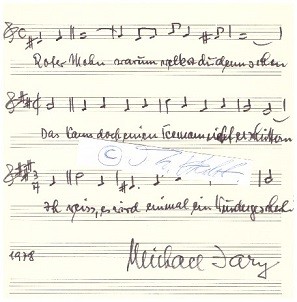 Roter Mohn warum welkst du denn schon
Das kann doch einen Seemann nicht erschüttern
Ich weiss, es wird einmal ein Wunder gescheh'n
1978 Michael Jary